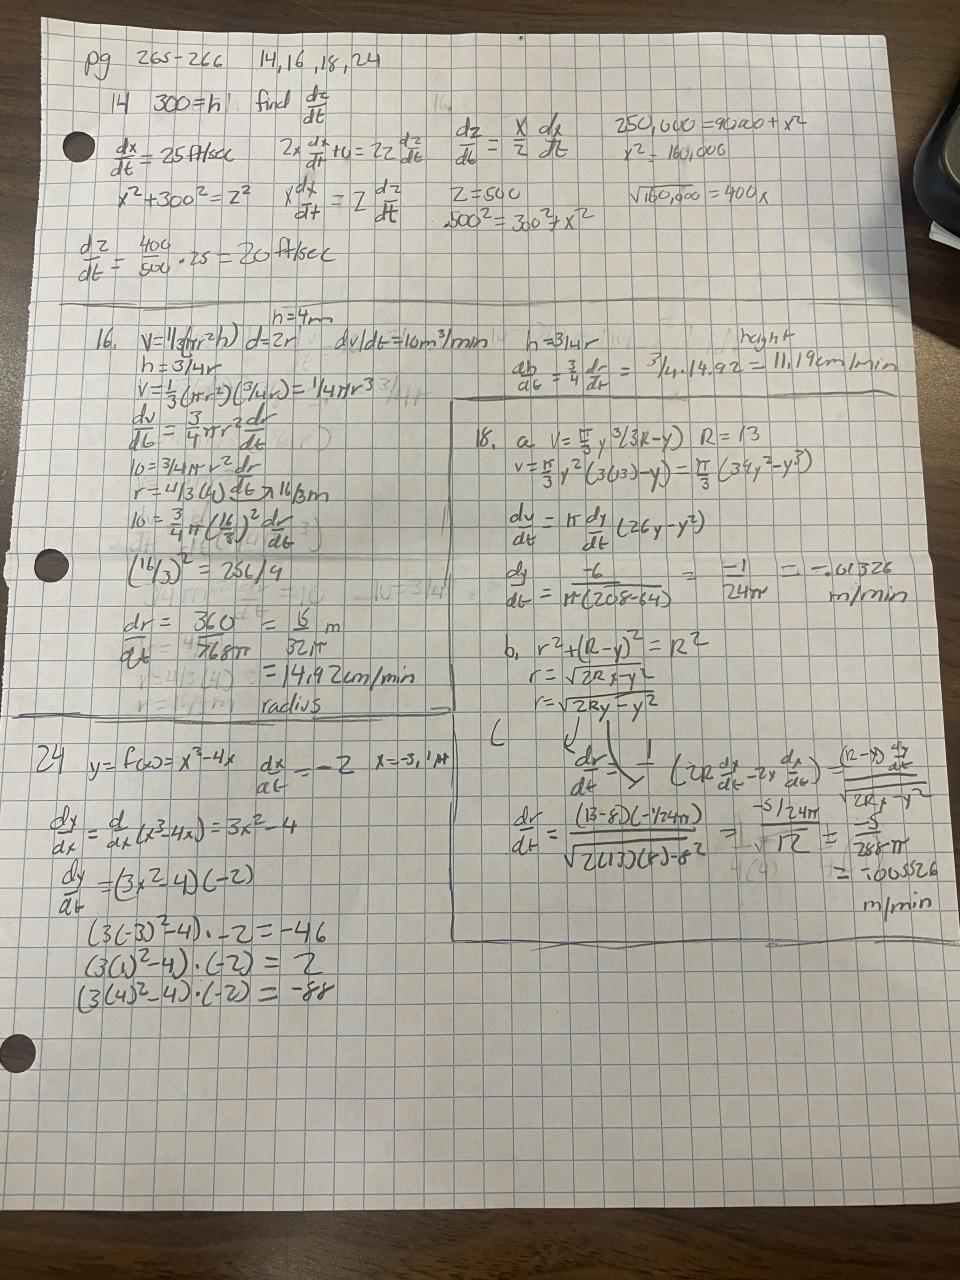 pg 265-266 14,16,18,24
14 300=h find dz/dt
dx/dt = 25ft/sec 2x dx/dt + 0 = 2z dz/dt dz/dt = x/z dx/dt 250,000 = 90,000 + x²
x² = 160,000
x² + 300² = z² x dx/dt = z dz/dt z = 500 √160,000 = 400x
500² = 300² + x²
dz/dt = 400/500 · 25 = 20 ft/sec
16. V = 1/3(πr²h) d=2r h=4m dv/dt = 10m³/min
h = 3/4r
V = 1/3(πr²)(3/4r) = 1/4πr³
dv/dt = 3/4 πr² dr/dt
10 = 3/4πr² dr/dt
r = 4/3(4) → 16/3m
10 = 3/4 π(16/3)² dr/dt
(16/3)² = 256/9
dr/dt = 360/768π = 15/32π m
= 14.92cm/min
radius
h = 3/4r height
dh/dt = 3/4 dr/dt = 3/4 · 14.92 = 11.19cm/min
18. a V = π/3 y³(3R-y) R = 13
V = π/3 y²(3(13)-y) = π/3 (39y²-y³)
dv/dt = π dy/dt (26y-y²)
dy/dt = -6/π(208-64) = -1/24π = -.01326
m/min
b. r² + (R-y)² = R²
r = √2Rx-y²
r = √2Ry-y²
dr/dt = 1 (2R dy/dt - 2y dx/dt) = (R-y) dy/dt / √2Rx-y²
dr/dt = (13-8)(-1/24π) / √2(13)(8)-8² = -5/24π / √12 = -5/288π
= -.005526
m/min
24 y = f(x) = x³-4x dx/dt = -2 x = -3, 1, 4
dy/dx = d/dx (x³-4x) = 3x²-4
dy/dt = (3x²-4)(-2)
(3(-3)²-4) · -2 = -46
(3(1)²-4) · (-2) = 2
(3(4)²-4) · (-2) = -88